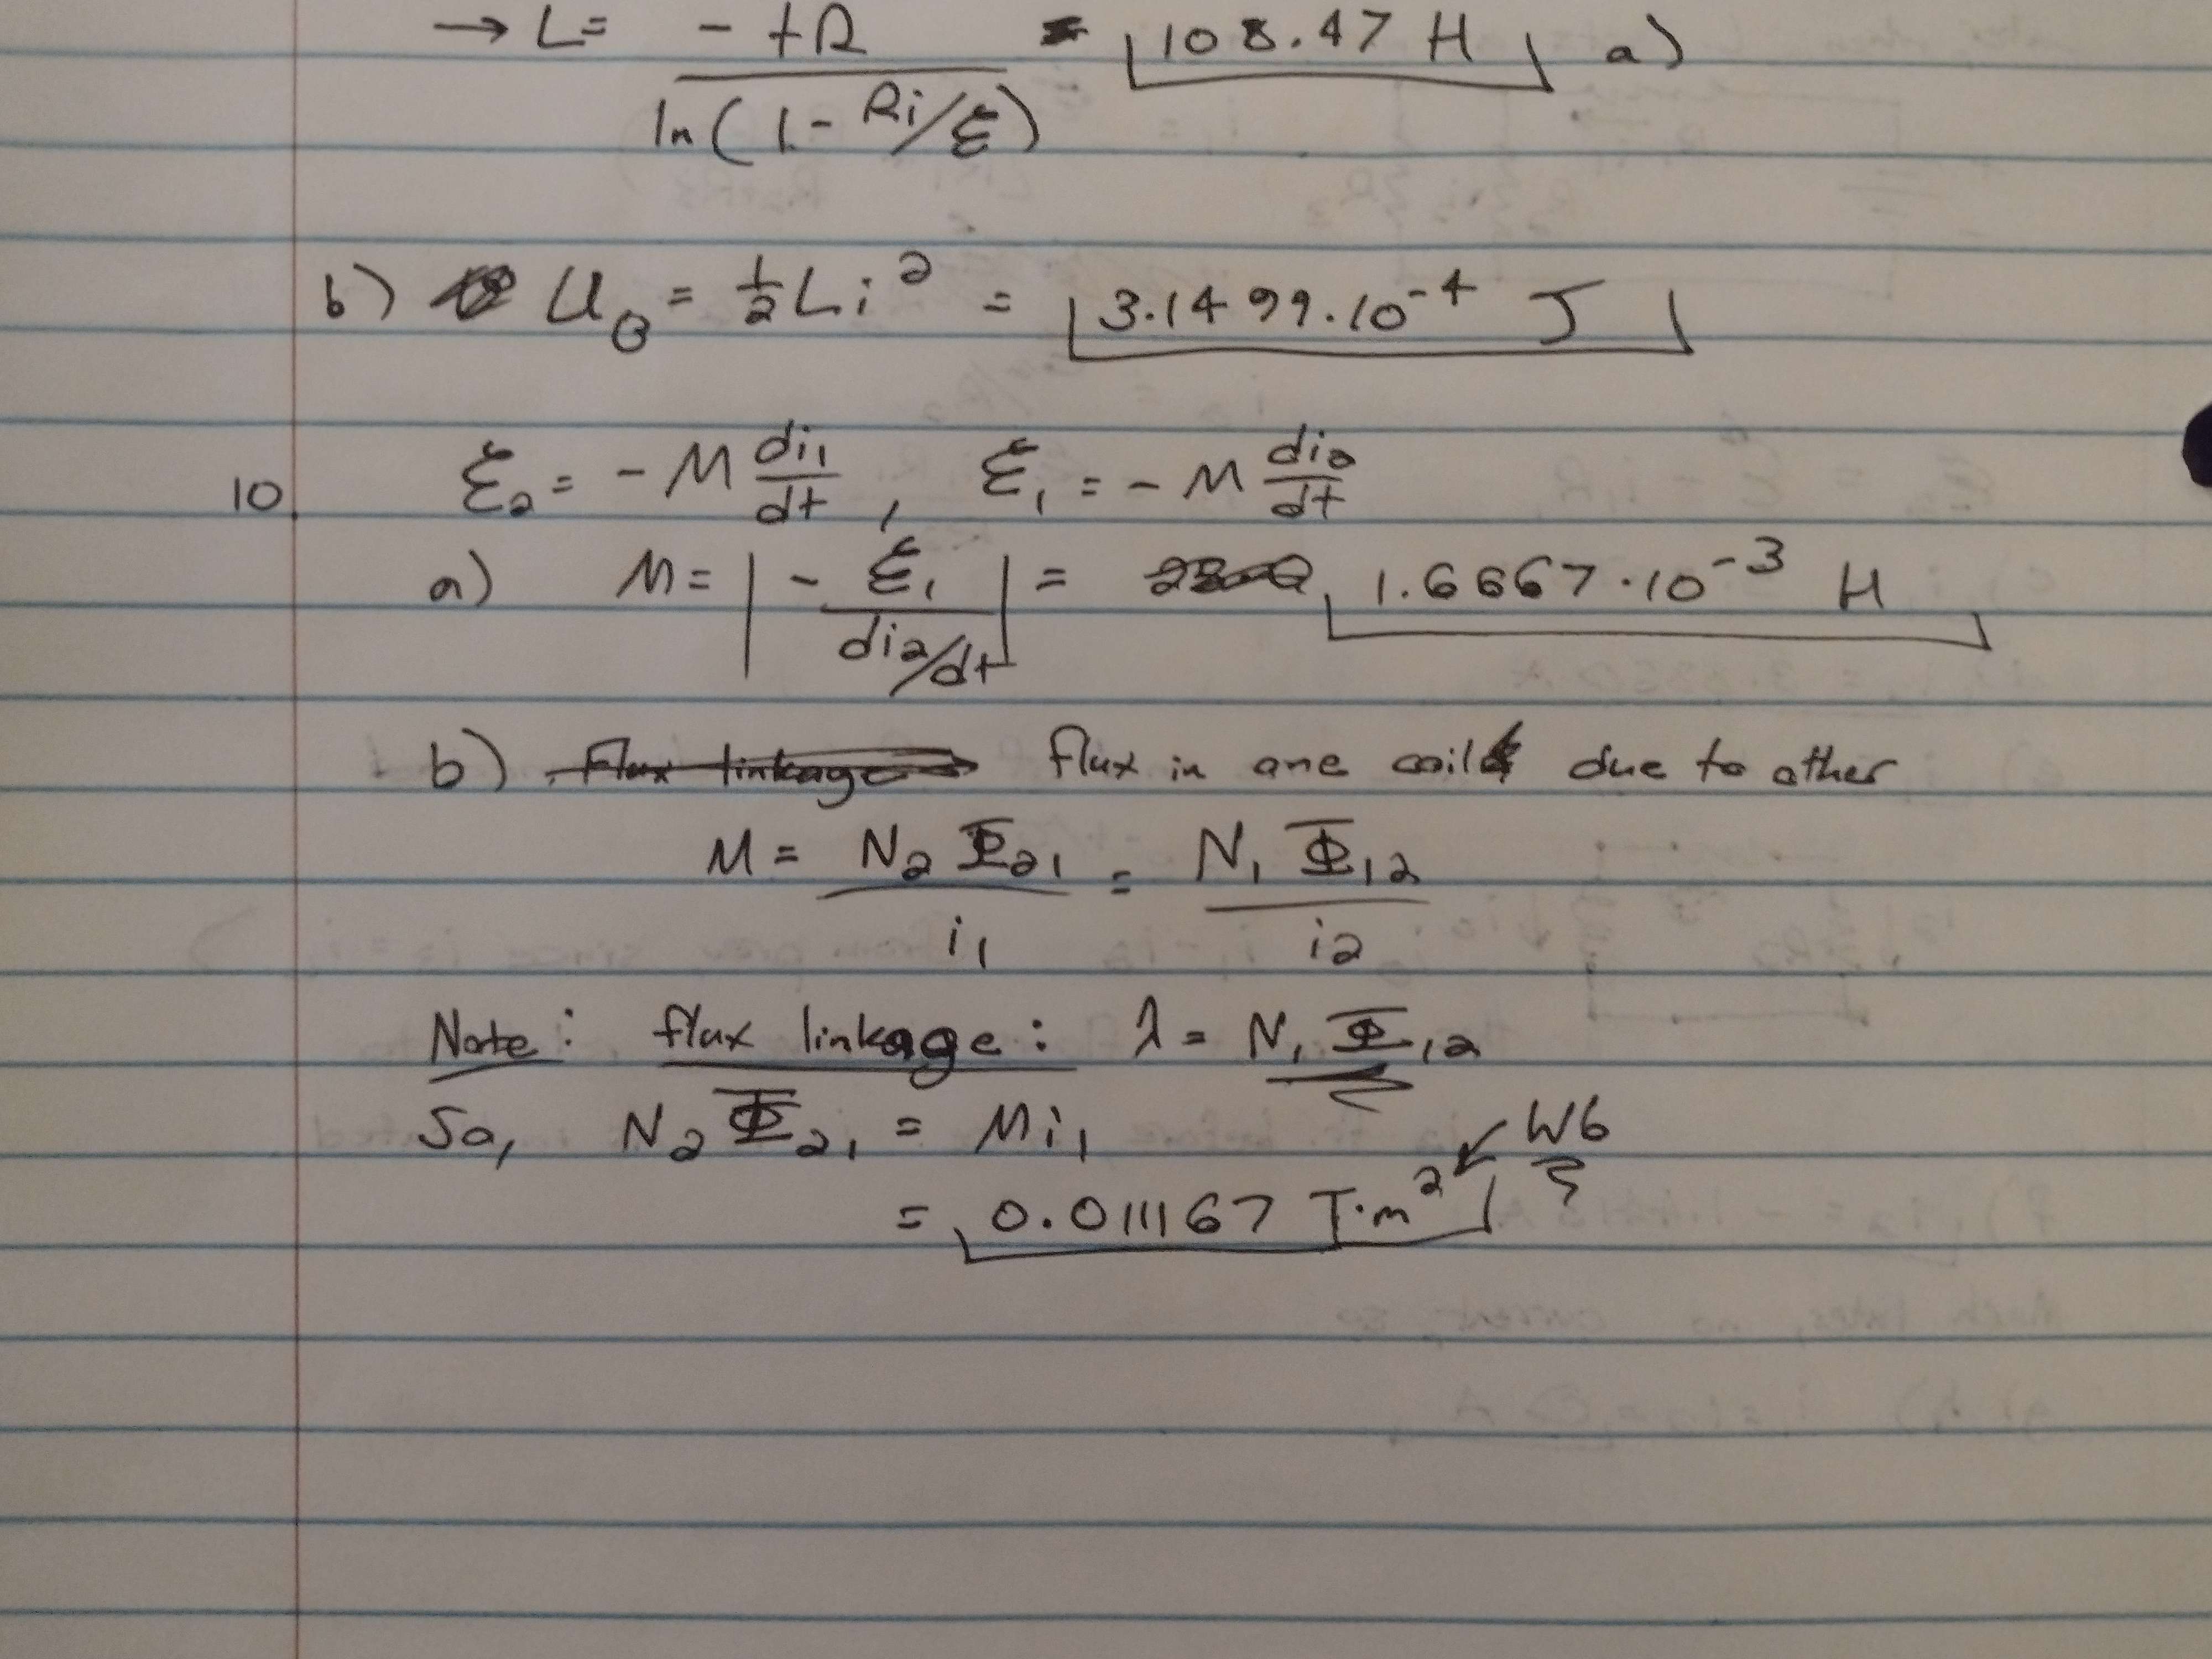 → L = -tR / ln(1 - Ri/ξ) = 108.47 H a)
b) U_B = ½Li² = 3.1499·10⁻⁴ J
10 ξ₂ = -M di₁/dt, ξ₁ = -M di₂/dt
a) M = |-ξ₁ / di₂/dt| = 1.6667·10⁻³ H
b) Flux linkage flux in one coil due to other
M = N₂Φ₂₁ / i₁ = N₁Φ₁₂ / i₂
Note: flux linkage: λ = N₁Φ₁₂
So, N₂Φ₂₁ = Mi₁
= 0.011167 T·m² ↙ Wb